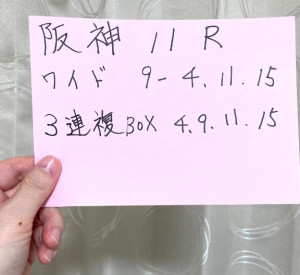 阪神 11 R
ワイド 9-4.11.15
3連複BOX 4.9.11.15